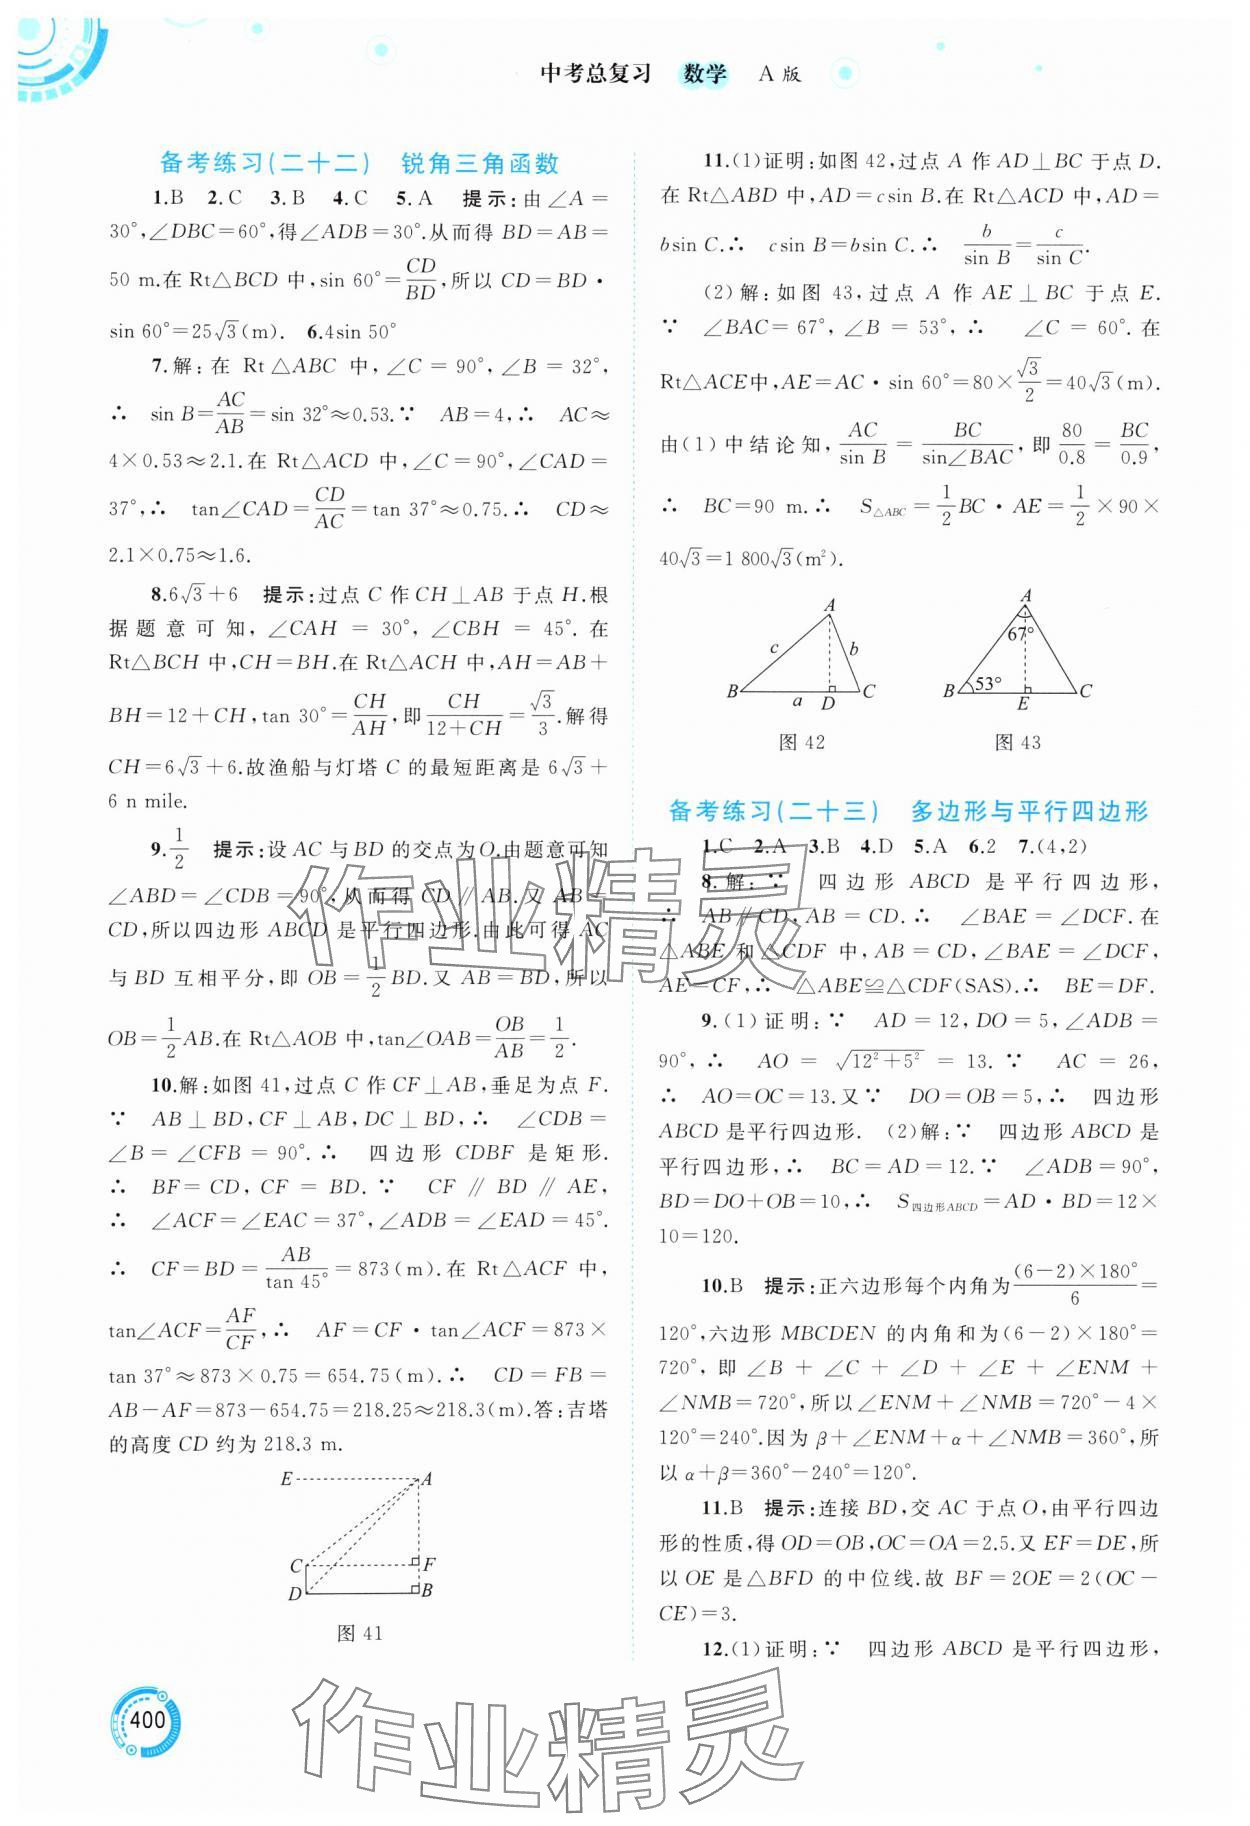 中考总复习 数学 A 版
备考练习(二十二) 锐角三角函数
1.B 2.C 3.B 4.C 5.A 提示:由∠A=
30°,∠DBC=60°,得∠ADB=30°.从而得 BD=AB=
50 m.在 Rt△BCD 中,sin 60°=CD/BD,所以 CD=BD·
sin 60°=25√3(m). 6.4sin 50°
7.解:在 Rt△ABC 中,∠C=90°,∠B=32°,
∴ sin B=AC/AB=sin 32°≈0.53.∵ AB=4,∴ AC≈
4×0.53≈2.1.在 Rt△ACD 中,∠C=90°,∠CAD=
37°,∴ tan∠CAD=CD/AC=tan 37°≈0.75.∴ CD≈
2.1×0.75≈1.6.
8.6√3+6 提示:过点 C 作 CH⊥AB 于点 H.根
据题意可知,∠CAH=30°,∠CBH=45°.在
Rt△BCH 中,CH=BH.在 Rt△ACH 中,AH=AB+
BH=12+CH,tan 30°=CH/AH,即 CH/(12+CH)=√3/3.解得
CH=6√3+6.故渔船与灯塔 C 的最短距离是 6√3+
6 n mile.
9.1/2 提示:设 AC 与 BD 的交点为 O.由题意可知
∠ABD=∠CDB=90°,从而得 CD∥AB.又 AB=
CD,所以四边形 ABCD 是平行四边形.由此可得 AC
与 BD 互相平分,即 OB=1/2BD.又 AB=BD,所以
OB=1/2AB.在 Rt△AOB 中,tan∠OAB=OB/AB=1/2.
10.解:如图 41,过点 C 作 CF⊥AB,垂足为点 F.
∵ AB⊥BD,CF⊥AB,DC⊥BD,∴ ∠CDB=
∠B=∠CFB=90°.∴ 四边形 CDBF 是矩形.
∴ BF=CD,CF=BD.∵ CF∥BD∥AE,
∴ ∠ACF=∠EAC=37°,∠ADB=∠EAD=45°.
∴ CF=BD=AB/tan 45°=873(m).在 Rt△ACF 中,
tan∠ACF=AF/CF,∴ AF=CF·tan∠ACF=873×
tan 37°≈873×0.75=654.75(m).∴ CD=FB=
AB-AF=873-654.75=218.25≈218.3(m).答:吉塔
的高度 CD 约为 218.3 m.
E A
C F
D B
图 41
400
11.(1)证明:如图 42,过点 A 作 AD⊥BC 于点 D.
在 Rt△ABD 中,AD=csin B.在 Rt△ACD 中,AD=
bsin C.∴ csin B=bsin C.∴ b/sin B=c/sin C.
(2)解:如图 43,过点 A 作 AE⊥BC 于点 E.
∵ ∠BAC=67°,∠B=53°,∴ ∠C=60°.在
Rt△ACE中,AE=AC·sin 60°=80×√3/2=40√3(m).
由(1)中结论知,AC/sin B=BC/sin∠BAC,即 80/0.8=BC/0.9,
∴ BC=90 m.∴ S△ABC=1/2BC·AE=1/2×90×
40√3=1 800√3(m²).
A c b B a D C
图 42
A 67° B 53° E C
图 43
备考练习(二十三) 多边形与平行四边形
1.C 2.A 3.B 4.D 5.A 6.2 7.(4,2)
8.解:∵ 四边形 ABCD 是平行四边形,
∴ AB∥CD,AB=CD.∴ ∠BAE=∠DCF.在
△ABE 和△CDF 中,AB=CD,∠BAE=∠DCF,
AE=CF,∴ △ABE≌△CDF(SAS).∴ BE=DF.
9.(1)证明:∵ AD=12,DO=5,∠ADB=
90°,∴ AO=√(12²+5²)=13.∵ AC=26,
∴ AO=OC=13.又∵ DO=OB=5,∴ 四边形
ABCD 是平行四边形. (2)解:∵ 四边形 ABCD 是
平行四边形,∴ BC=AD=12.∵ ∠ADB=90°,
BD=DO+OB=10,∴ S四边形ABCD=AD·BD=12×
10=120.
10.B 提示:正六边形每个内角为(6-2)×180°/6=
120°,六边形 MBCDEN 的内角和为(6-2)×180°=
720°,即∠B+∠C+∠D+∠E+∠ENM+
∠NMB=720°,所以∠ENM+∠NMB=720°-4×
120°=240°.因为 β+∠ENM+α+∠NMB=360°,所
以 α+β=360°-240°=120°.
11.B 提示:连接 BD,交 AC 于点 O,由平行四边
形的性质,得 OD=OB,OC=OA=2.5.又 EF=DE,所
以 OE 是△BFD 的中位线.故 BF=2OE=2(OC-
CE)=3.
12.(1)证明:∵ 四边形 ABCD 是平行四边形,
作业精灵
作业精灵